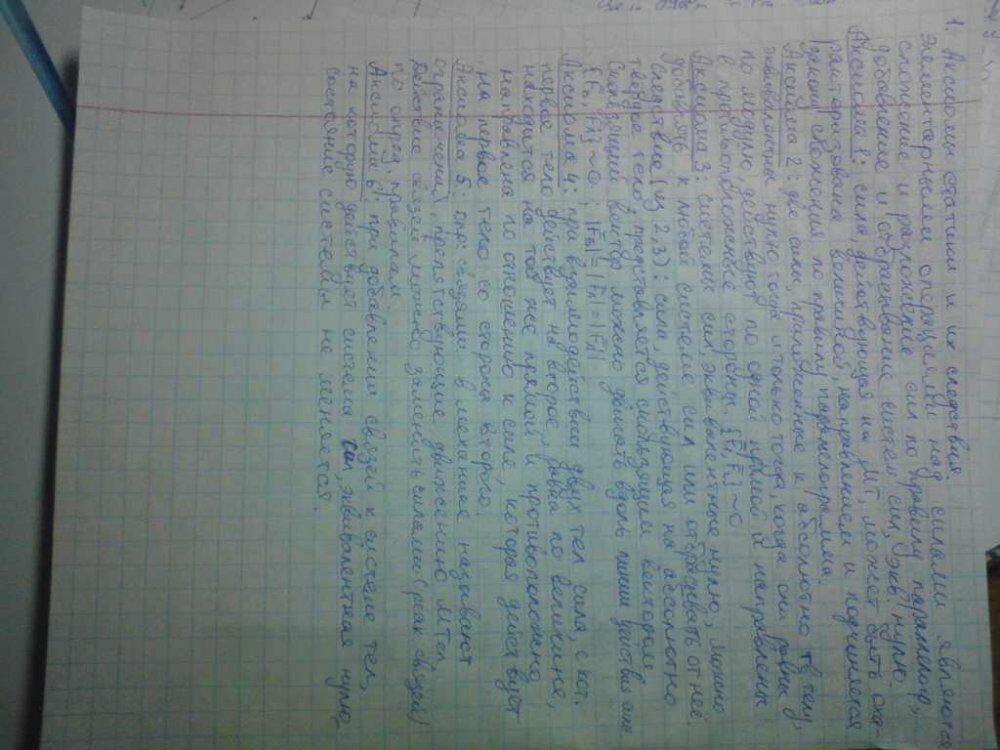 1. Аксиомы статики и их следствия.
Элементарными операциями над силами является
сложение и разложение сил по правилу параллелогр,
добавление и отбрасывание систем сил, экв. нулю.
Аксиома 1: сила, действующая на МТ, может быть оха-
рактеризована величиной, направлением и подчиняется
закону сложения по правилу параллелограмма.
Аксиома 2: две силы, приложенные к абсолютно тв телу,
эквивалентны нулю тогда и только тогда, когда они равны
по модулю, действуют по одной прямой и направлены
в противоположные стороны. {F1, F2} ~ 0
Аксиома 3: системы сил, эквивалентные нулю, можно
добавлять к любой системе сил или отбрасывать от неё
Следствие (из 2,3): сила, действующая на абсолютно
твердое тело, представляется скользящим вектором
Скользящий вектор можно двигать вдоль линии действия
~ 0; |FB| = |FA| = |F|
Аксиома 4: при взаимодействии двух тел сила, с кот.
первое тело действует на второе, равна по величине,
находится на той же прямой и противоположно
направлена по отношению к силе, которая действует
на первое тело со стороны второго.
Аксиома 5: связями в механике называют
ограничения, препятствующие движению МТ
Действие связей можно заменить силами (реак связей)
по опред. правилам.
Аксиома 6: при добавлении связей к системе тел,
на которую действует система сил, эквивалентная нулю,
состояние системы не меняется.